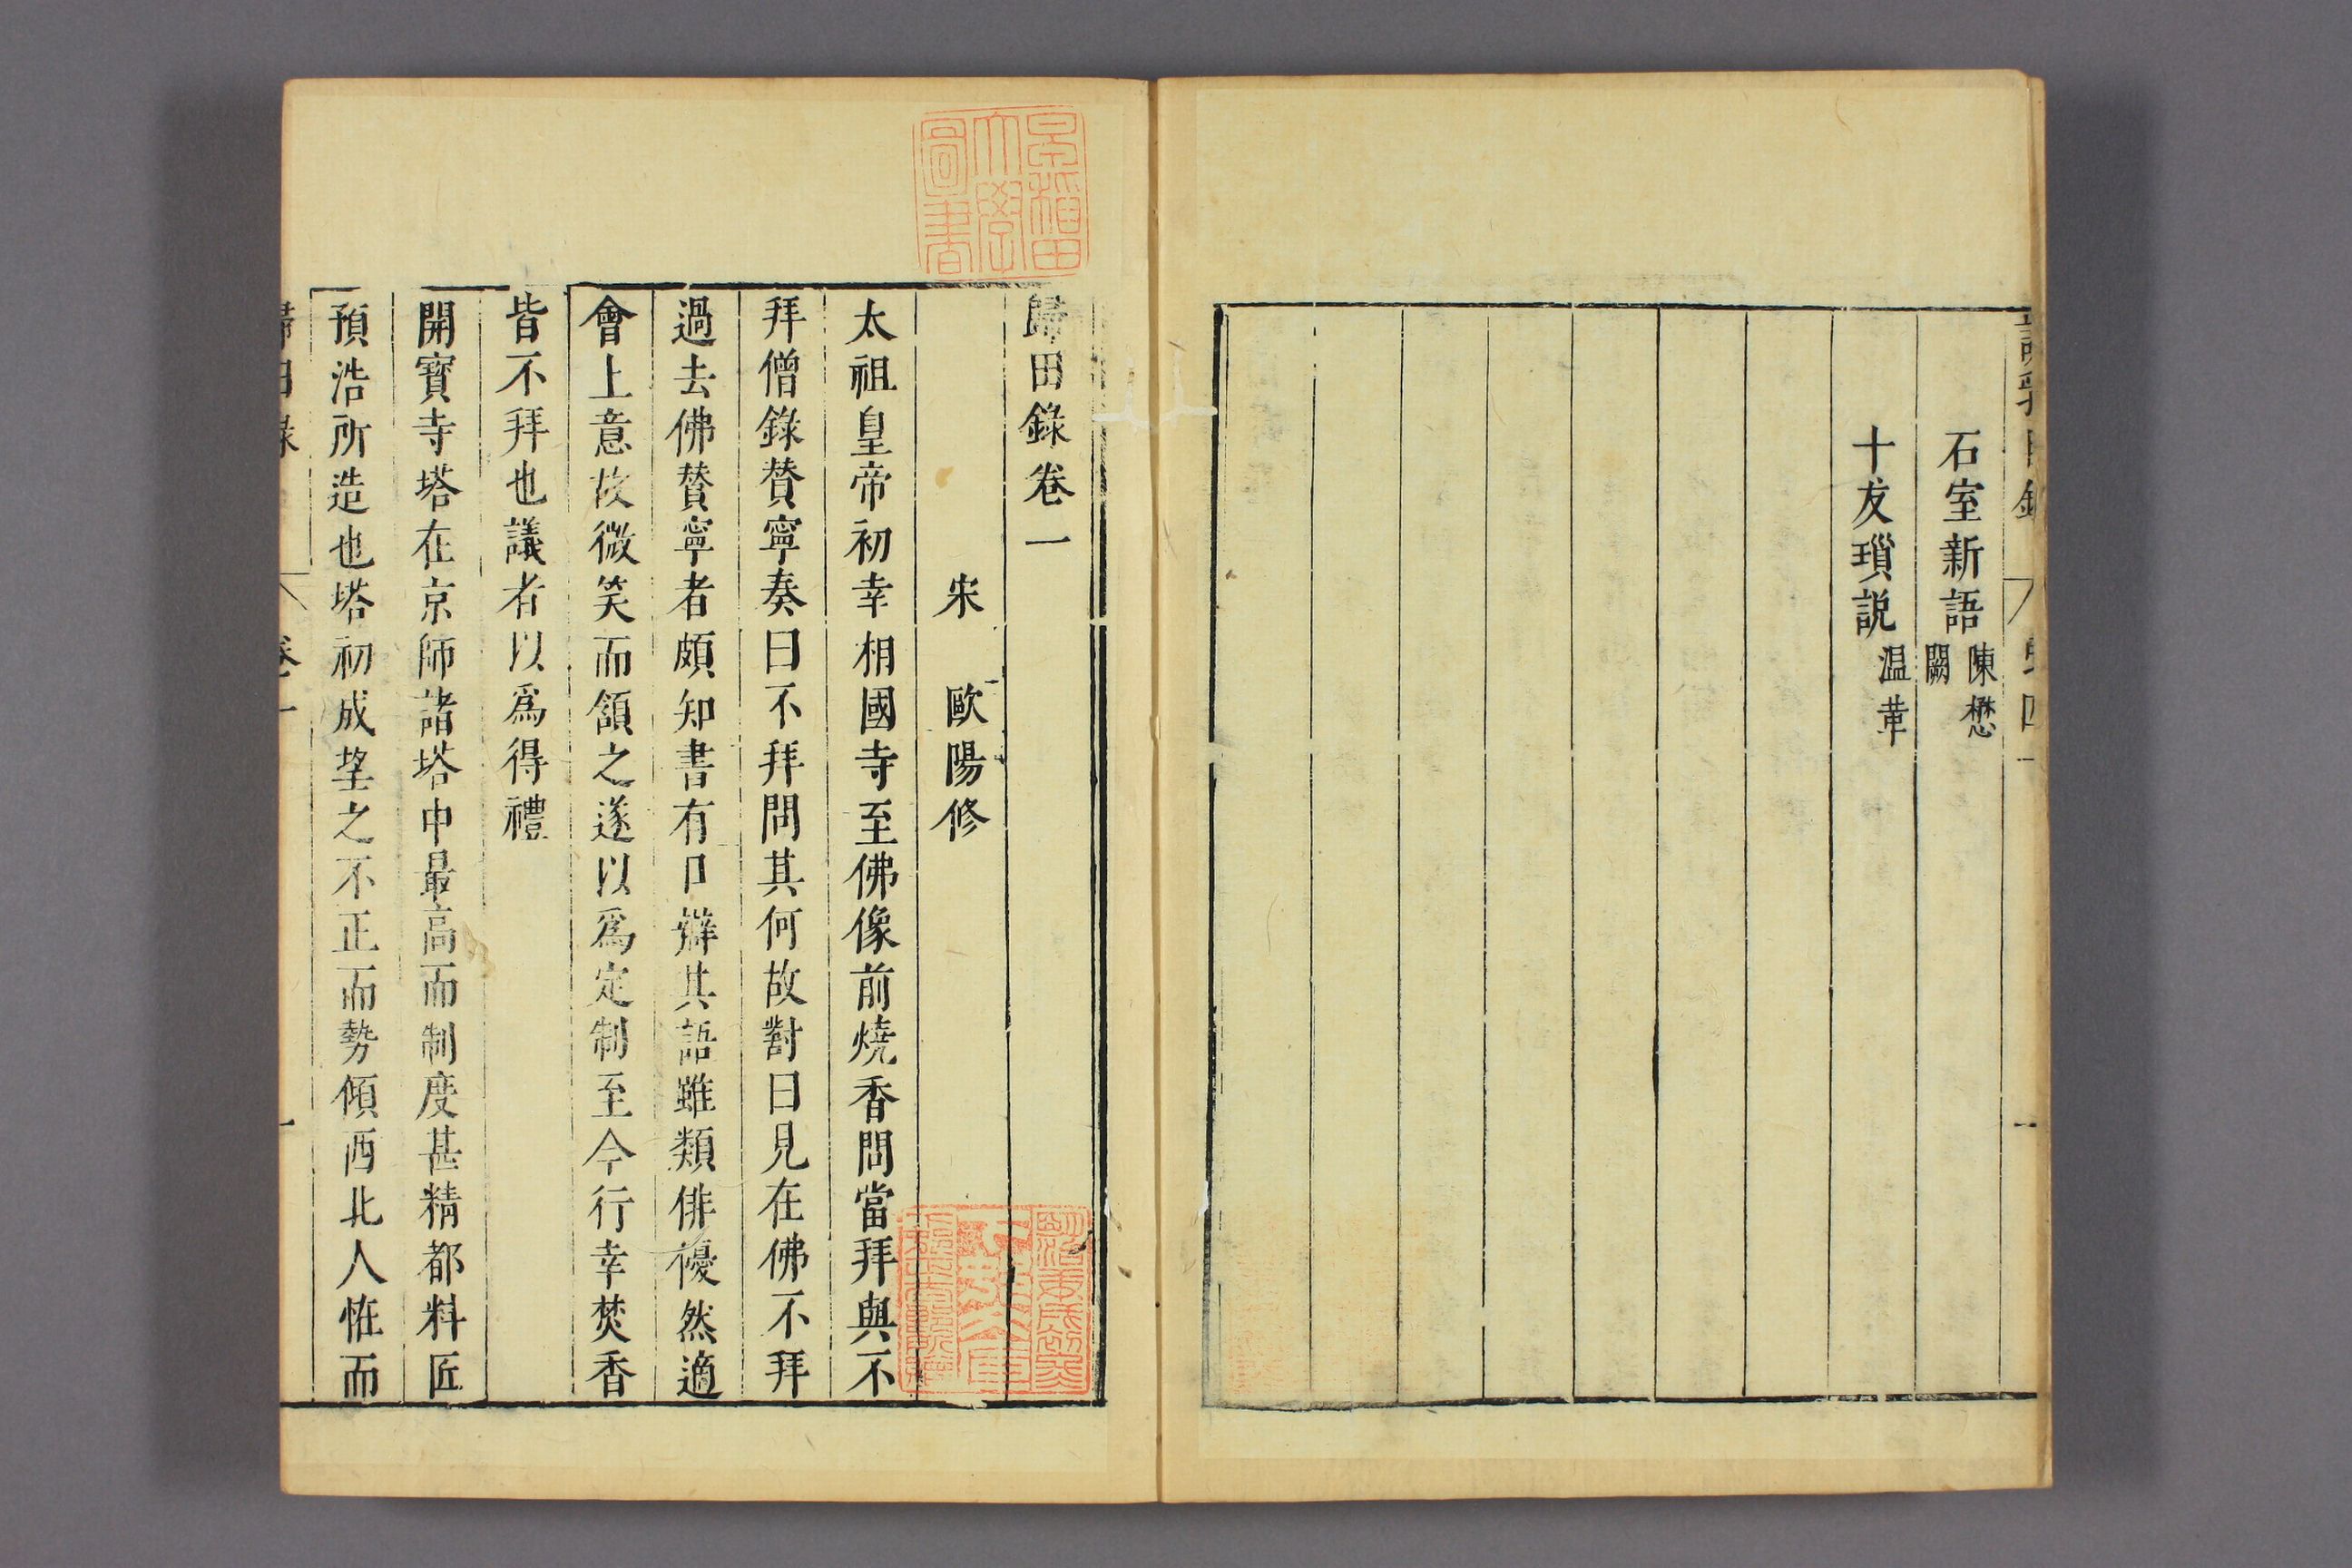 石室新語 陳懋 闕
十友瑣説 温革
歸田錄卷一
宋 歐陽修
太祖皇帝初幸相國寺至佛像前燒香問當拜與不
拜僧錄賛寧奏曰不拜問其何故對曰見在佛不拜
過去佛賛寧者頗知書有口辯其語雖類俳優然適
會上意故微笑而頷之遂以爲定制至今行幸焚香
皆不拜也議者以爲得禮
開寶寺塔在京師諸塔中最高而制度甚精都料匠
預浩所造也塔初成望之不正而勢傾西北人恠而
歸田錄 卷一 一
早稲田大學圖書